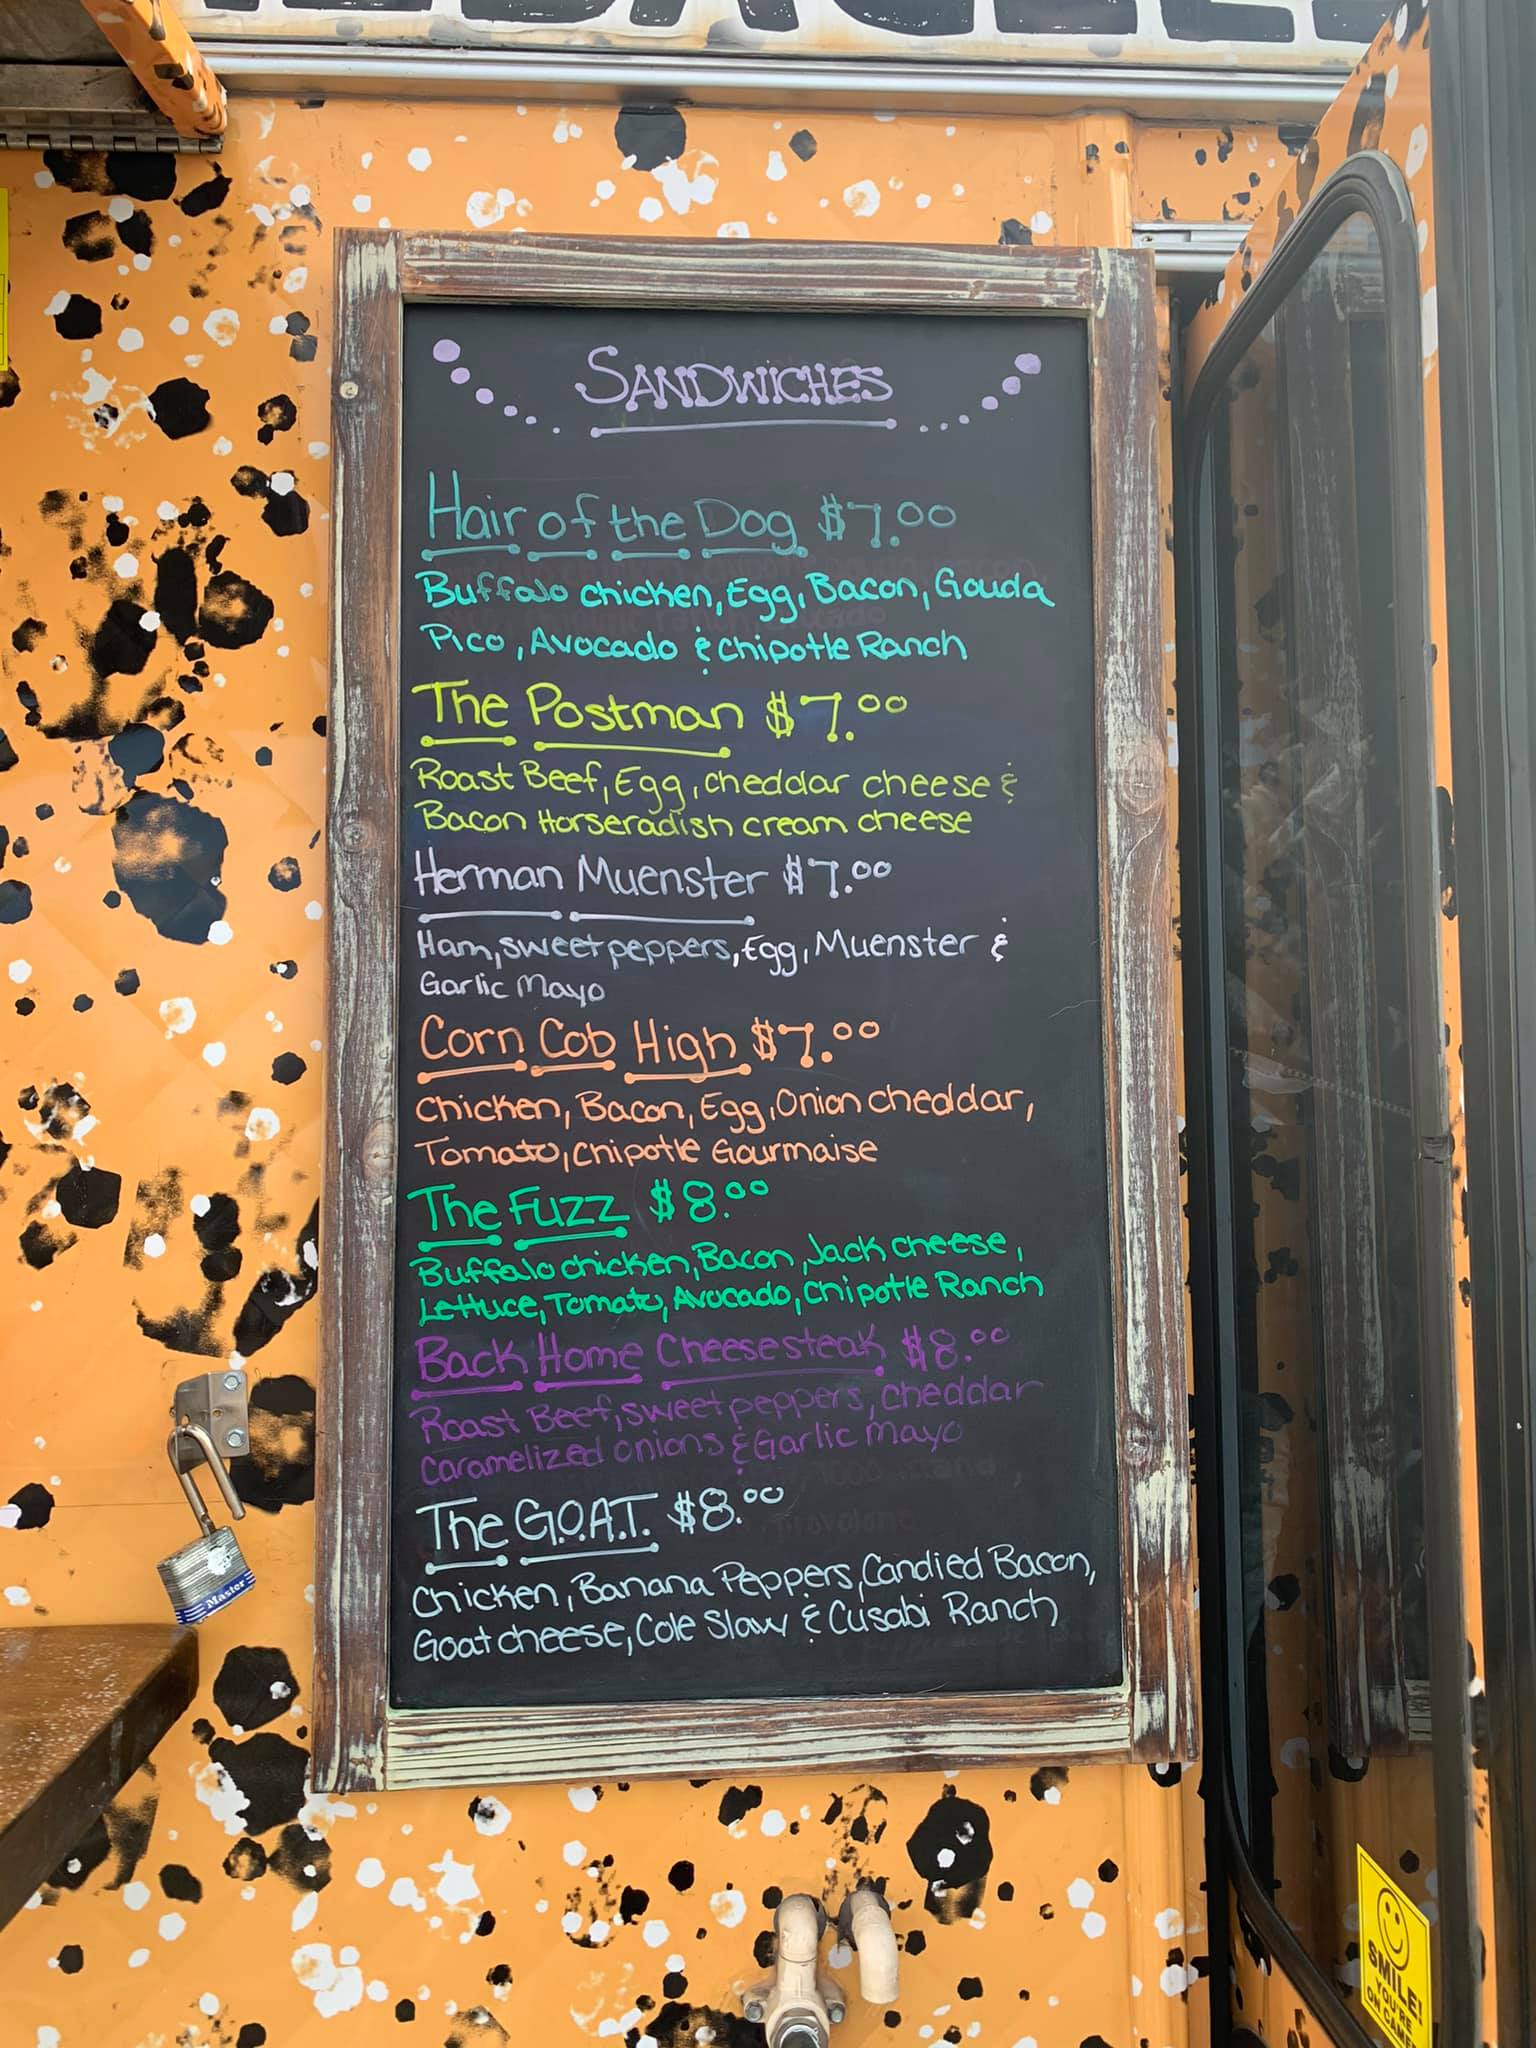 SANDWICHES
Hair of the Dog $7.00
Buffalo chicken, Egg, Bacon, Gouda
Pico, Avocado & Chipotle Ranch
The Postman $7.00
Roast Beef, Egg, cheddar cheese &
Bacon Horseradish cream cheese
Herman Muenster $7.00
Ham, sweet peppers, Egg, Muenster &
Garlic Mayo
Corn Cob High $7.00
Chicken, Bacon, Egg, Onion cheddar,
Tomato, Chipotle Gourmaise
The Fuzz $8.00
Buffalo chicken, Bacon, Jack cheese,
Lettuce, Tomato, Avocado, Chipotle Ranch
Back Home Cheesesteak $8.00
Roast Beef, sweet peppers, cheddar
caramelized onions & Garlic mayo
The G.O.A.T. $8.00
Chicken, Banana Peppers, Candied Bacon,
Goat cheese, Cole Slaw & Cusabi Ranch
Master
SMILE!
YOU'RE
ON